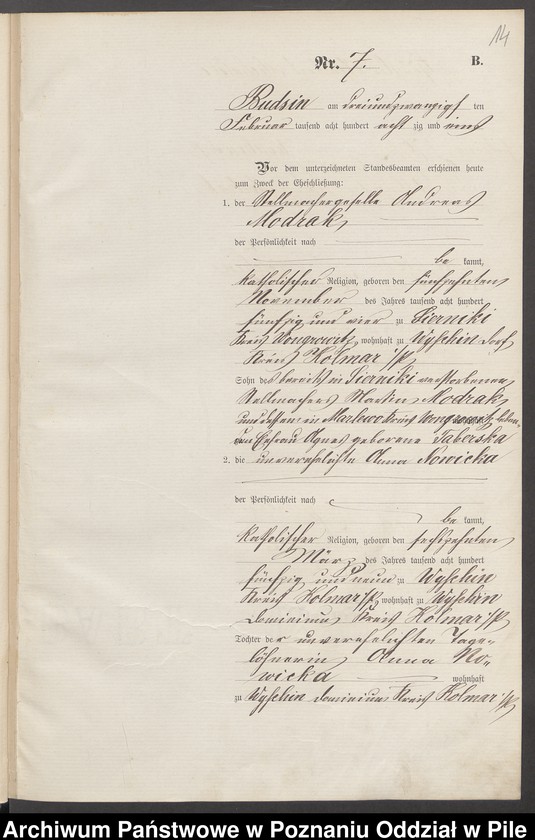 14
Nr. 7. B.
Budsin am dreiundzwanzigsten
Februar tausend acht hundert achtzig und eins
Vor dem unterzeichneten Standesbeamten erschienen heute
zum Zweck der Eheschließung:
1. der Stellmachergeselle Andreas
Modrak,
der Persönlichkeit nach
bekannt,
katholischer Religion, geboren den fünfzehnten
November des Jahres tausend acht hundert
fünfzig und vier zu Sierniki
Kreis Wongrowitz, wohnhaft zu Wyschin Dorf
Kreis Kolmar i/P
Sohn des bereits in Sierniki verstorbenen
Stellmachers Martin Modrak,
und dessen in Marlewo Kreis Wongrowitz
Ehefrau Agnes geborene Taberska
2. die unverehelichte Anna Nowicka
der Persönlichkeit nach
bekannt,
katholischer Religion, geboren den sechszehnten
März des Jahres tausend acht hundert
fünfzig und neun zu Wyschin
Kreis Kolmar i/P, wohnhaft zu Wyschin
Dominium Kreis Kolmar i/P
Tochter der unverehelichten Tage-
löhnerin Anna No-
wicka wohnhaft
zu Wyschin Dominium Kreis Kolmar i/P
Archiwum Państwowe w Poznaniu Oddział w Pile